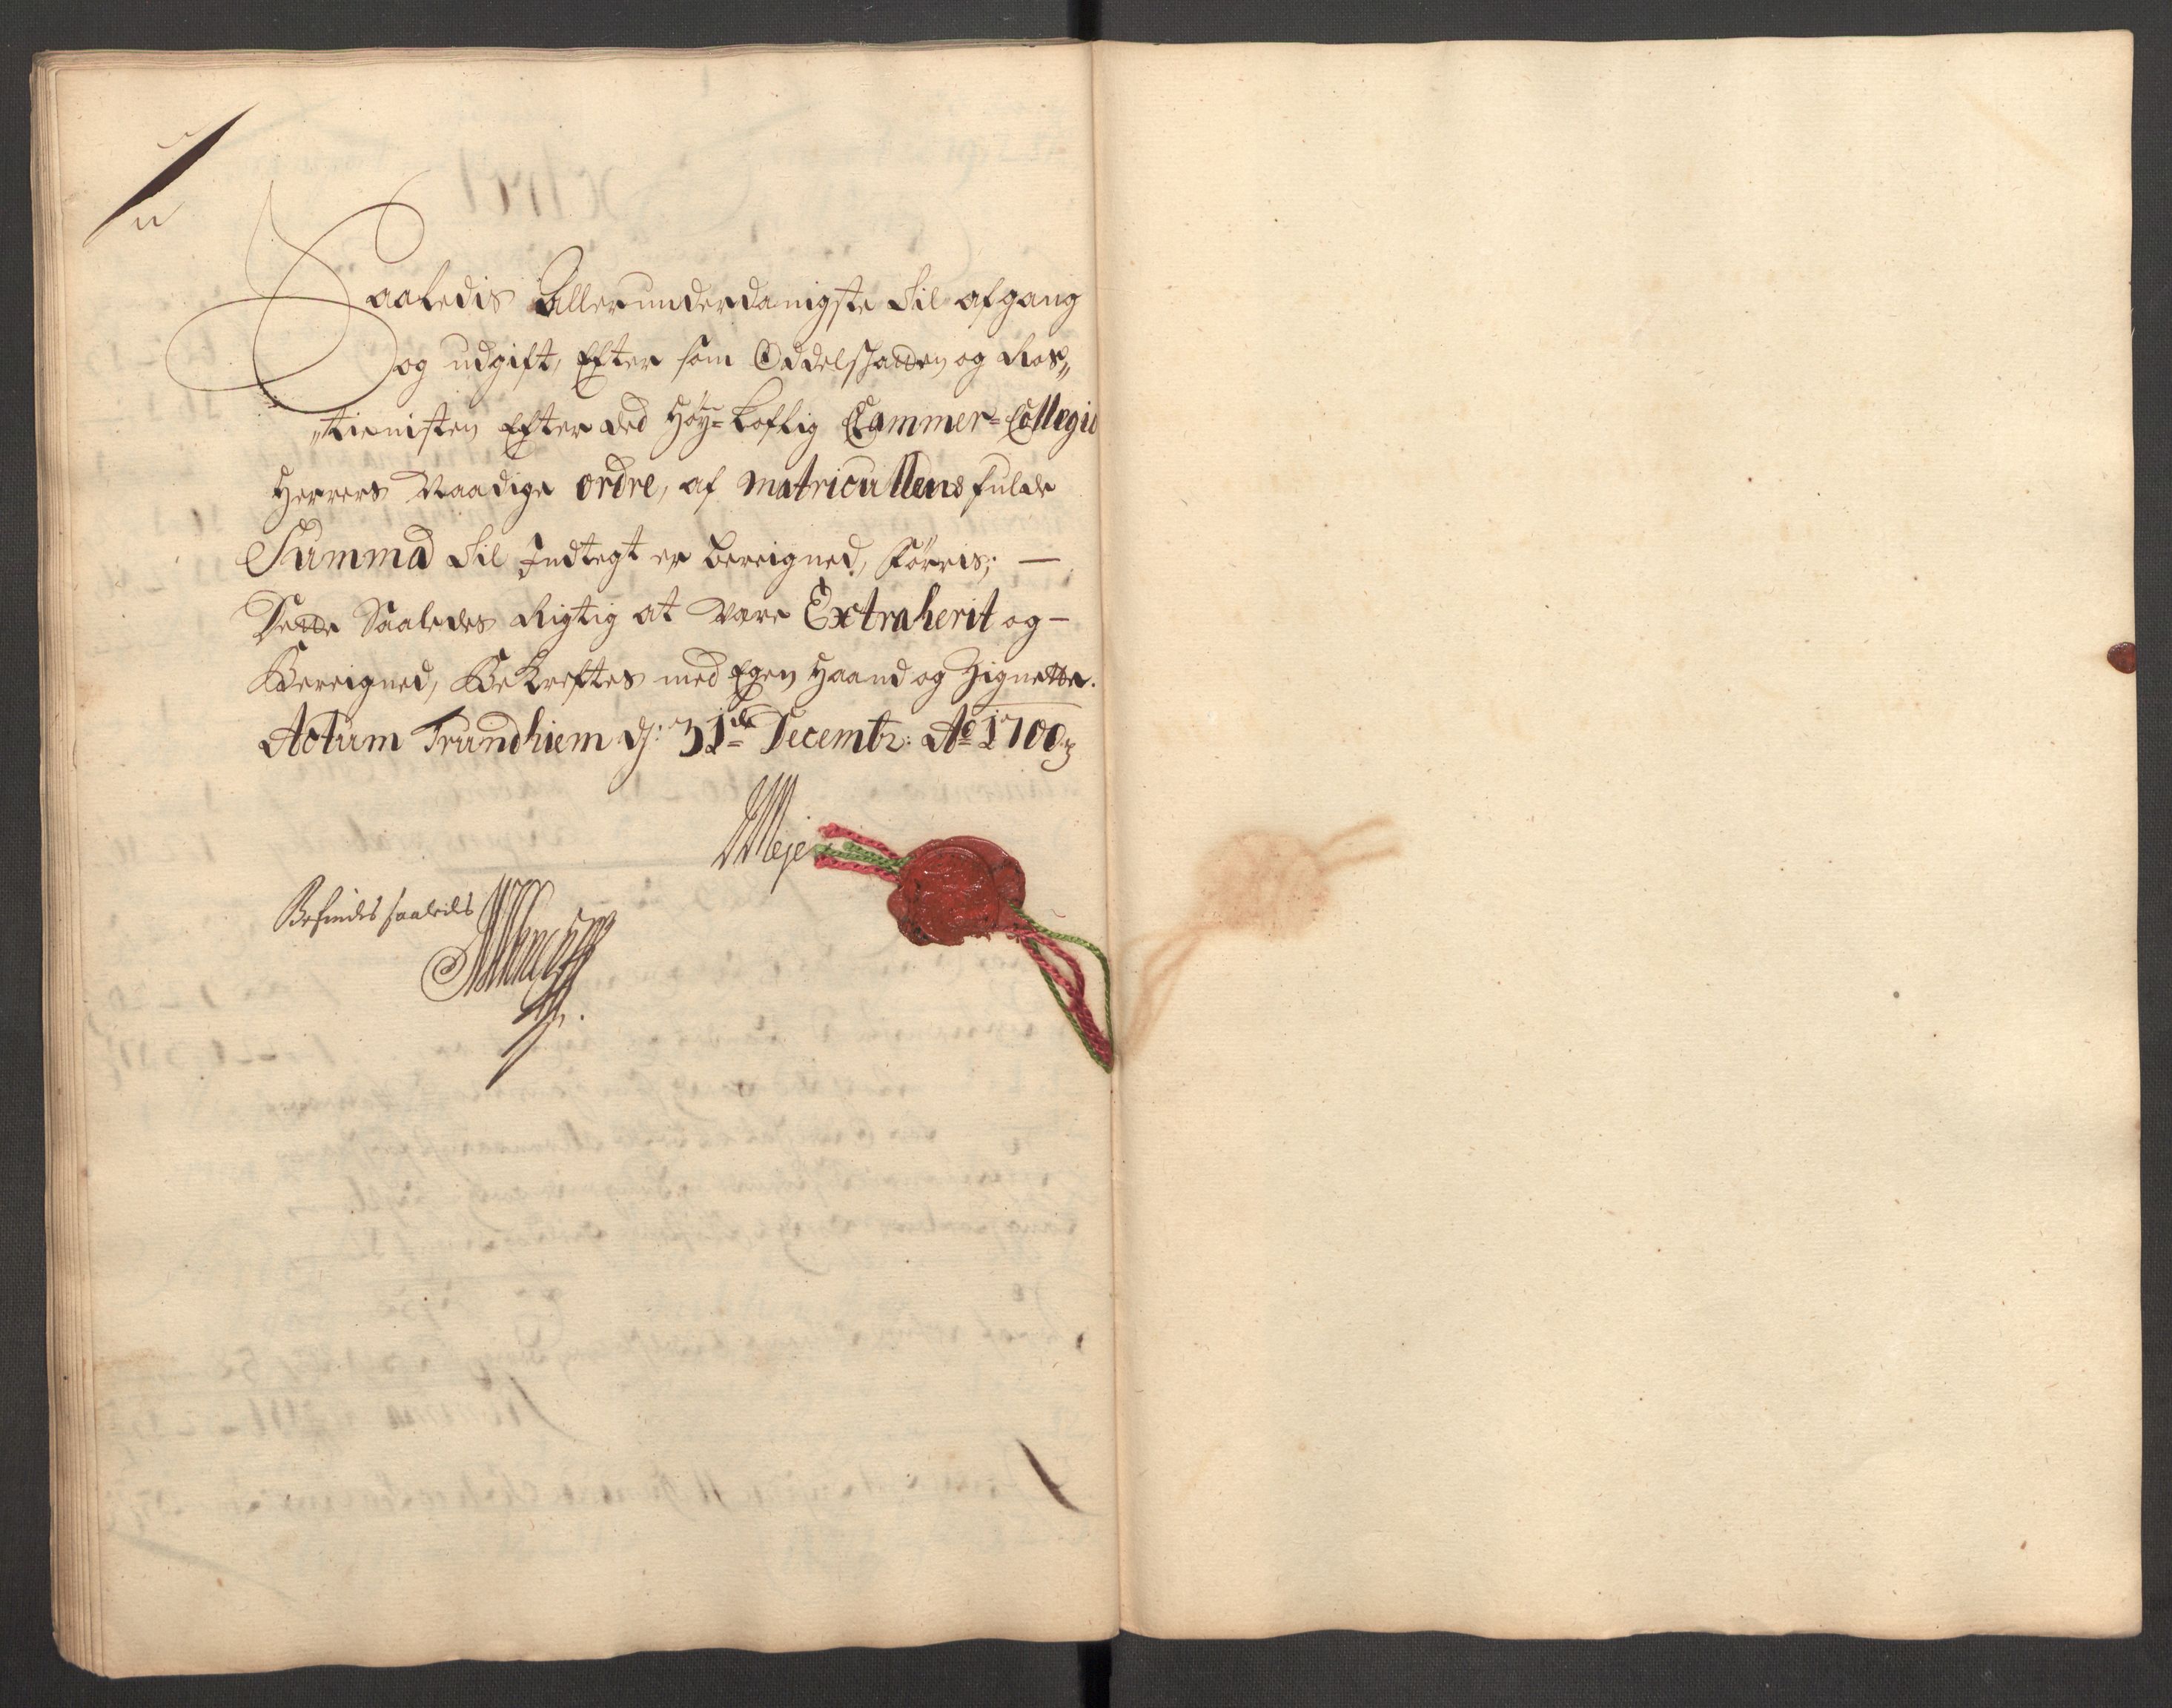 Saaledis Allerunderdanigste til afgang
og udgift, Efter som Oddelskatten og Ros„
„tienisten Efter ded Høy=Loflig Cammer=Collegie
Herrers Naadige ordre, af matricullens fulde
Summa til Indtegt er bereigned, Førris; —
Dette Saaledes Rigtig at være Extraherit og —
Bereigned, Bekreftes med Egen Haand og Zignette.
Actum Trundhiem d: 31de Decembr: Ao 1700
Meje
Befindes saaledes